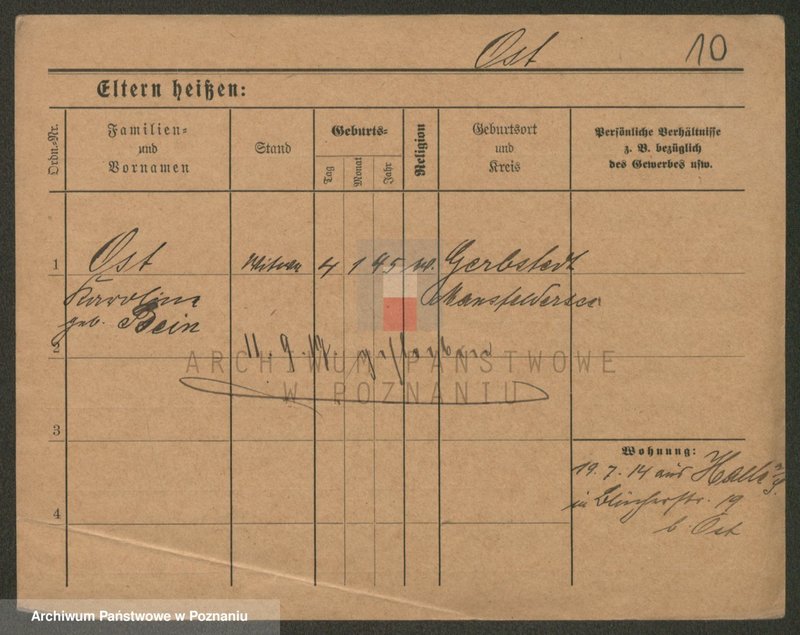 Ost 10
Eltern heißen:
Ordn.-Nr.
Familien- und Vornamen
Stand
Geburts-
Tag
Monat
Jahr
Religion
Geburtsort und Kreis
Persönliche Verhältnisse
z. B. bezüglich
des Gewerbes usw.
1 Ost Witwe 4 1 45 ev. Gerbstedt
Karoline Mansfeldersee
geb. Bein
2
11. 9. 17 gestorben
ARCHIWUM PAŃSTWOWE
W POZNANIU
3
Wohnung:
19. 7. 14 aus Halle a/S.
in Blücherstr. 19
b. Ost
4
Archiwum Państwowe w Poznaniu